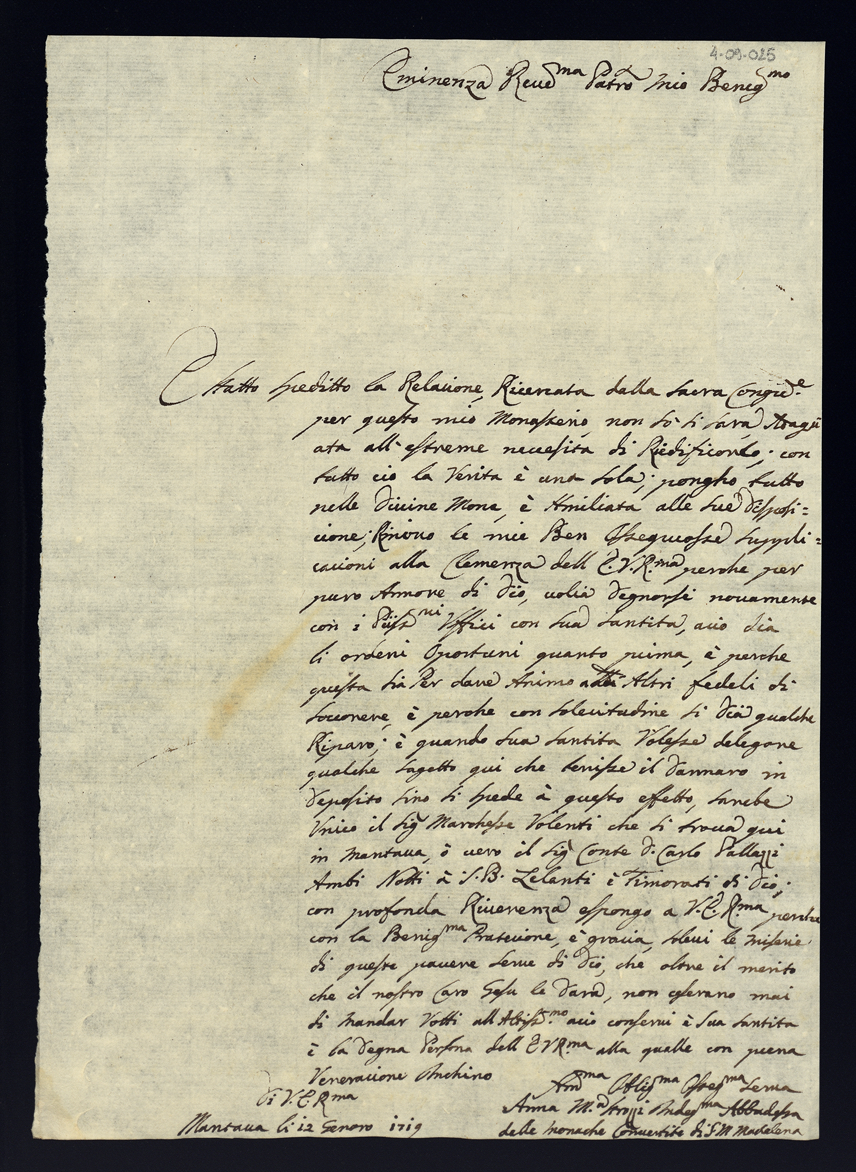 4-09-025
Eminenza Reud.ma Patrõ mio Benig.mo
È statto speditto la Relatione, Ricercata dalla Sacra Congre.e
per questo mio Monastero, non sò si sarà Adaqu
ata all'estreme necesita di Riedificarlo; con
tutto ciò la Verita è una sola; pongho tutto
nelle Divine Mane, è Amiliata alle sue disposi=
cione; Rinovo le mie Ben Ossequiosse suppli=
cacioni alla Clemenza dell E.V.R.ma perche per
puro Amore di Dio, volia degnarsi novamente
con i Uffici con Sua Santita, acio dia
li ordeni Oportuni quanto prima, è perche
questa sia Per dare Animo alli Altri fedeli di
socorere, è perche con solecitudine si dia qualche
Riparo; è quando sua santita Volesse delegare
qualche sogetto qui che tenisse il dannaro in
deposito sino si spede à questo effetto, sarebe
Unico il Sig Marchesse Valenti che si trova qui
in Mantaua, ò vero il Sig Conte D. Carlo Pallazzi
Ambi Notti à S.B. Zelanti è Timorati di Dio;
con profonda Riverenza espongo a V.E.R.ma perche
con la Benig.ma Protecione, è gracia, solevi le miserie
di queste pauere serve di Dio, che oltre il merito
che il nostro Caro Gesu le darà, non cesarano mai
di mandar Votti all Altiss.mo acio conservi è Sua Santita
è la degna Persona dell E V R.ma alla qualle con piena
Veneracione Anchino
Di V.E.R.ma
Um.ma Oblig.ma Osseq.ma Serva
Mantaua li 12 Genaro 1719
Anna M.a Strozzi Indeg.ma Abbadessa
delle monache Convertite di S. M. Madalena